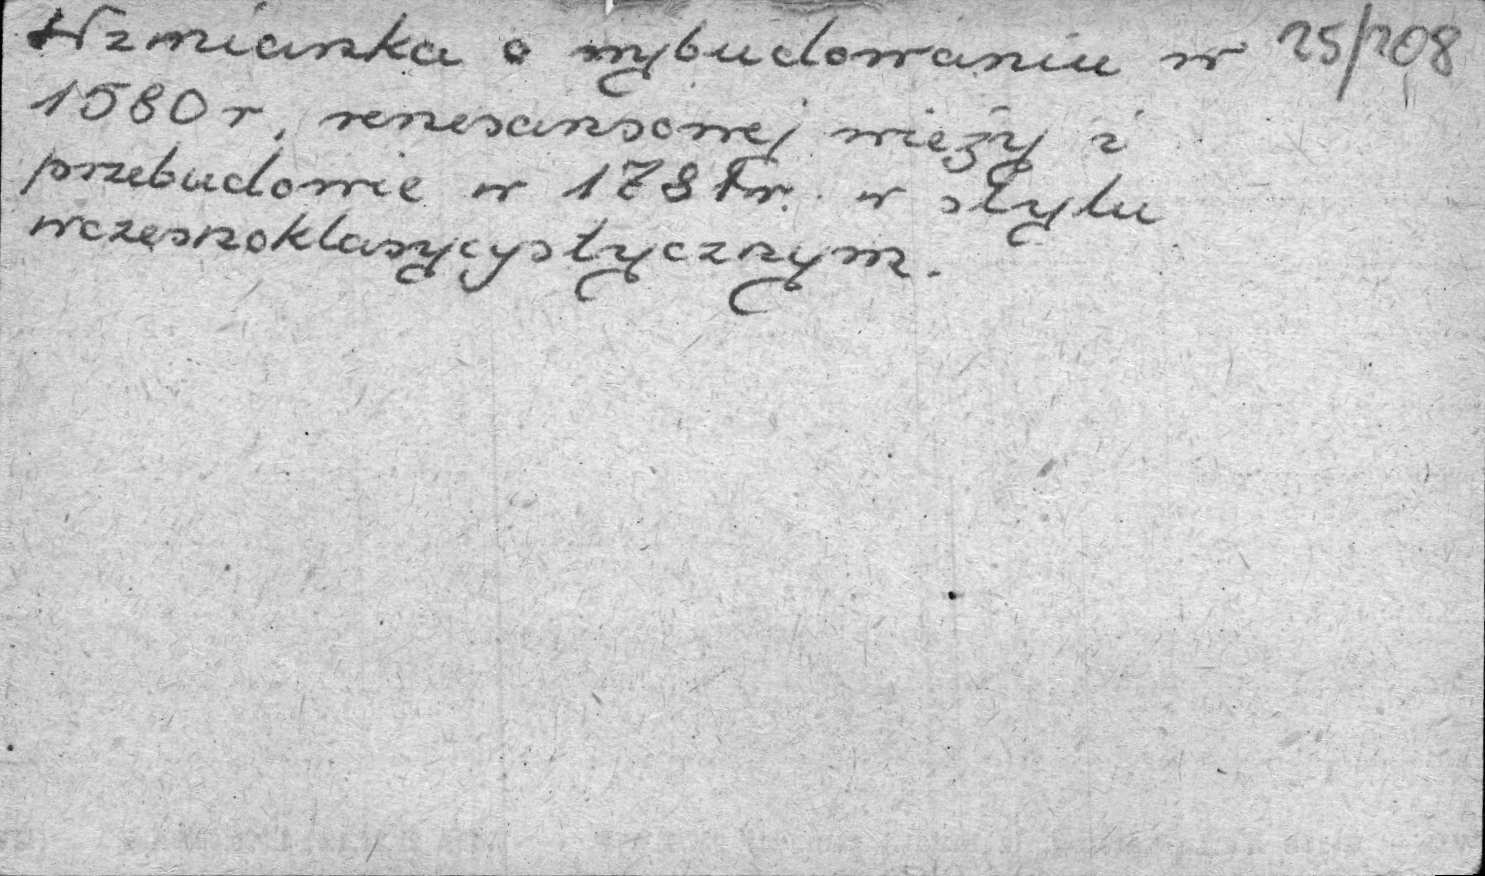 Wzmianka o wybudowaniu w 25/208
1580 r. renesansowej wieży i
przebudowie w 1787 r. w stylu
wczesnoklasycystycznym.